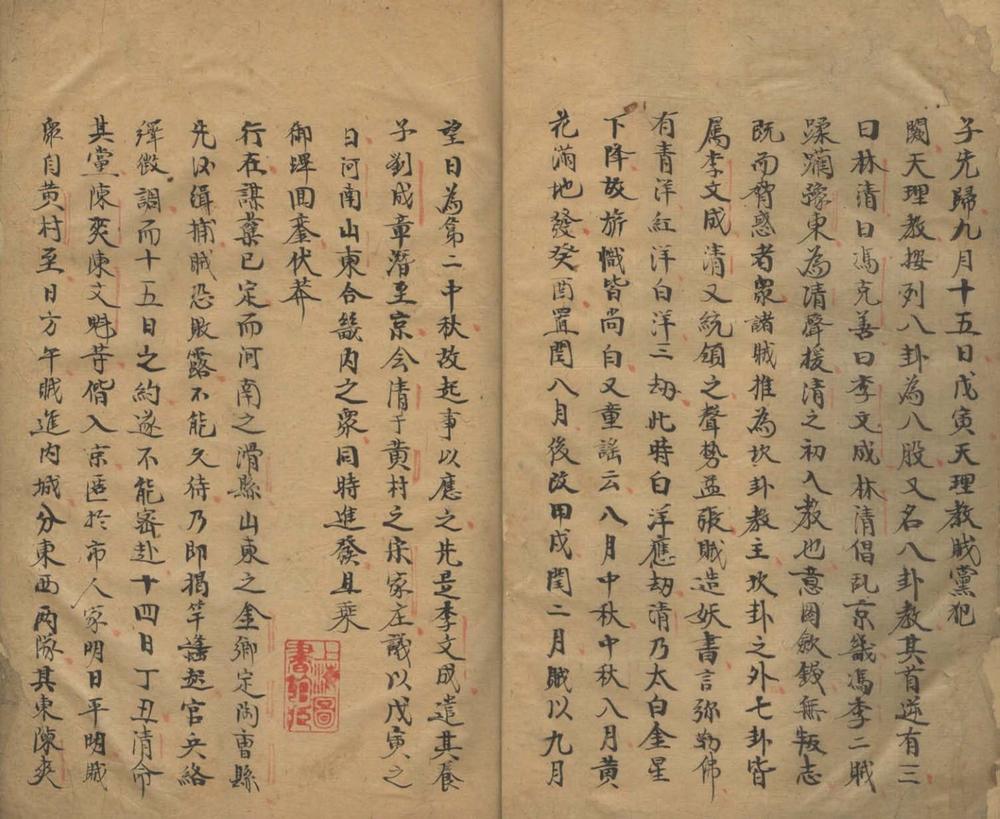 子先歸九月十五日戊寅天理教賊黨犯
闕天理教按列八卦為八股又名八卦教其首逆有三
曰林清曰馮克善曰李文成林清倡乱京畿馮李二賊
蹂躪豫東為清聲援清之初入教也意図歛錢無叛志
既而脅惑者衆諸賊推為坎卦教主坎卦之外七卦皆
属李文成清又統領之聲勢益張賊造妖書言弥勒佛
有青洋紅洋白洋三劫此時白洋應劫清乃太白金星
下降故旂幟皆尚白又童謠云八月中秋中秋八月黄
花滿地發癸酉置閏八月後改甲戌閏二月賊以九月
望日為第二中秋故起事以應之先是李文成遣其養
子劉成章潛至京会清于黄村之宋家庄議以戊寅之
日河南山東合畿内之衆同時進發且乘
御蹕回鑾伏莽
行在謀業已定而河南之滑縣山東之金鄉定陶曹縣
先後緝捕賊恐敗露不能久待乃即揭竿蠭起官兵絡
繹徴調而十五日之約遂不能密赴十四日丁丑清命
其黨陳爽陳文魁等偕入京匿於市人家明日平明賊
衆自黄村至日方午賊進内城分東西两隊其東陳爽
上海圖
書館藏